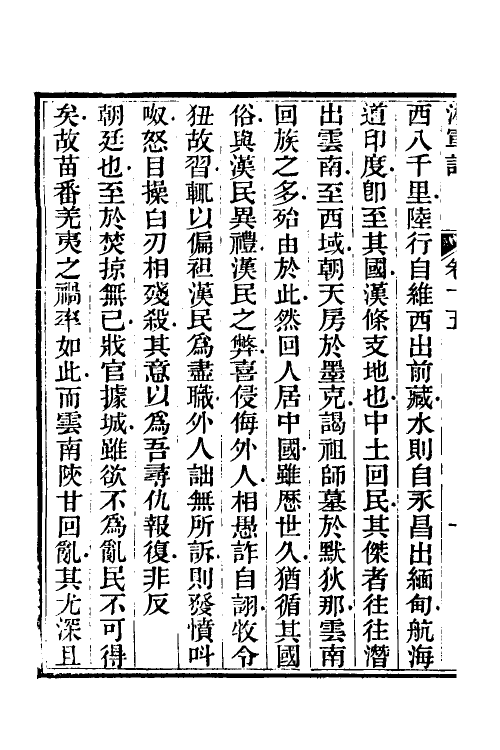 湘軍記 卷十五 一
西八千里陸行自維西出前藏水則自永昌出緬甸航海
道印度卽至其國漢條支地也中土回民其傑者往往潛
出雲南至西域朝天房於墨克謁祖師墓於默狄那雲南
回族之多殆由於此然回人居中國雖歷世久猶循其國
俗與漢民異禮漢民之弊喜侵侮外人相愚詐自詡牧令
狃故習輒以偏袒漢民爲盡職外人詘無所訴則發憤叫
呶怒目操白刃相殘殺其意以爲吾尋仇報復非反
朝廷也至於焚掠無已戕官據城雖欲不爲亂民不可得
矣故苗番羌夷之禍率如此而雲南陝甘回亂其尤深且